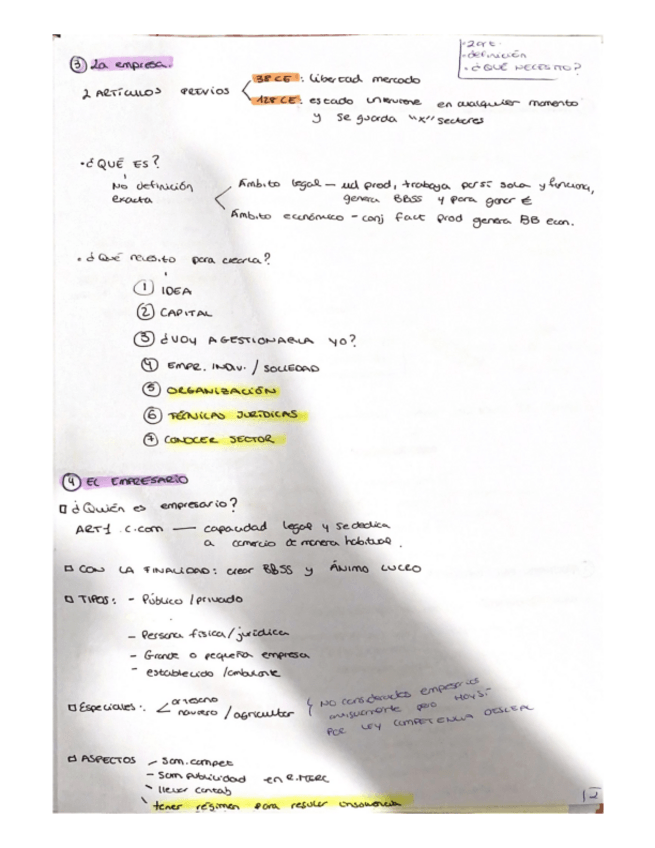 - 2 art.
- definición
- ¿QUÉ NECESITO?
③ La empresa.
2 ARTÍCULOS PREVIOS
38 CE: libertad mercado
128 CE: estado interviene en cualquier momento
y se guarda "x" sectores
· ¿QUÉ ES?
No definición
exacta
Ámbito legal — ud prod, trabaja por sí sola y funciona,
genera BBSS y para ganar €
Ámbito económico - conj fact prod genera BB econ.
· ¿Qué necesito para crearla?
① IDEA
② CAPITAL
③ ¿VOY A GESTIONARLA YO?
④ EMPR. INDIV. / SOCIEDAD
⑤ ORGANIZACIÓN
⑥ TÉCNICAS JURÍDICAS
⑦ CONOCER SECTOR
④ EL EMPRESARIO
¿Quién es empresario?
ART1 C.com — capacidad legal y se dedica
a comercio de manera habitual.
CON LA FINALIDAD: crear BBSS y ÁNIMO LUCRO
TIPOS: - Público / privado
- Persona física / jurídica
- Grande o pequeña empresa
- establecido / ambulante
Especiales: artesano
/ agricultor
NO considerados empresarios
pero HOY SÍ
POR LEY COMPETENCIA DESLEAL
ASPECTOS - Som. compet
- Som publicidad en R.MERC
- llevar contab
- tener régimen para resolver insolvencia
12